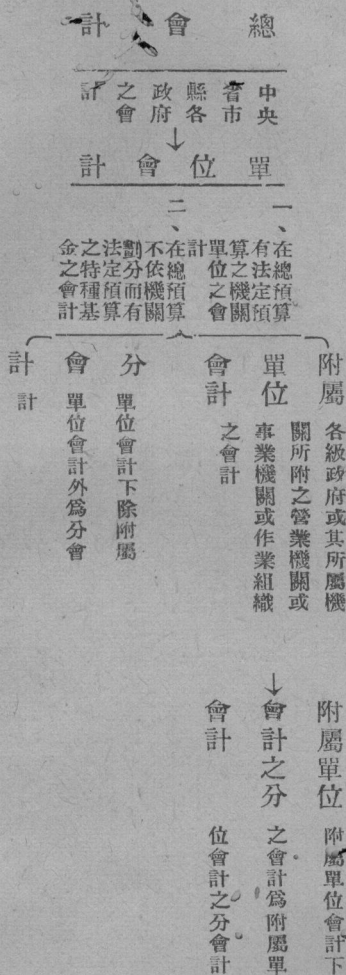 總會計
中央
省市
縣各
政府
之會
計
↓
單位會計
一、在總預算
有法定預
算之機關
單位之會
計
二、在總預算
不依機關
劃分而有
法定預算
之特種基
金之會計
附屬
單位
會計
各級政府或其所屬機
關所附之營業機關或
事業機關或作業組織
之會計
→
附屬單位
會計之分
會計
附屬單位會計下
之會計爲附屬單
位會計之分會計
分
會
計
單位會計下除附屬
單位會計外爲分會
計